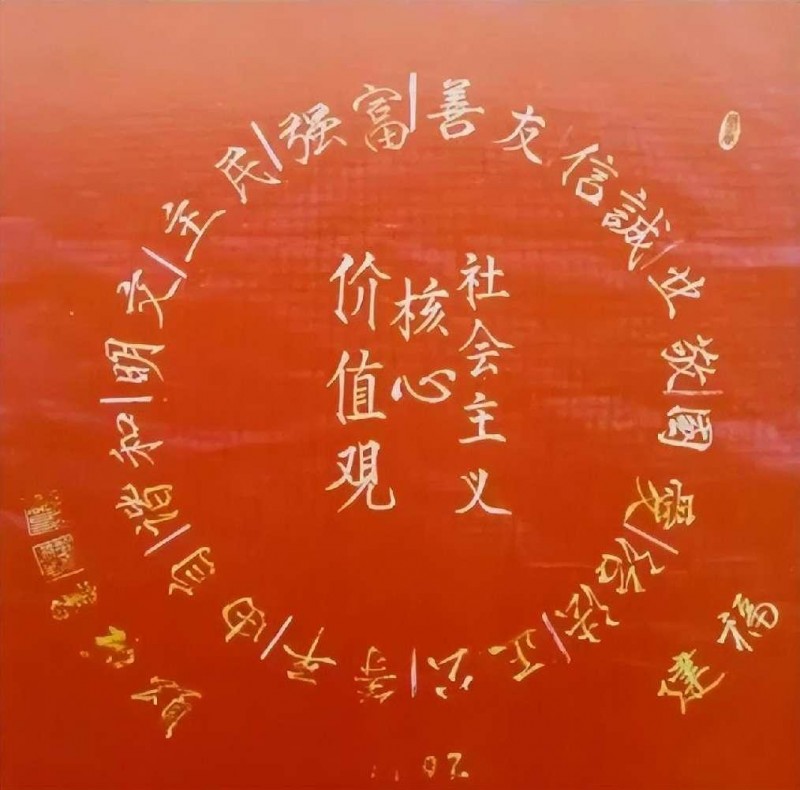 社会主义
核心
价值覌
富强
民主
文明
和谐
自由
平等
公正
法治
爱國
敬业
誠信
友善
福建